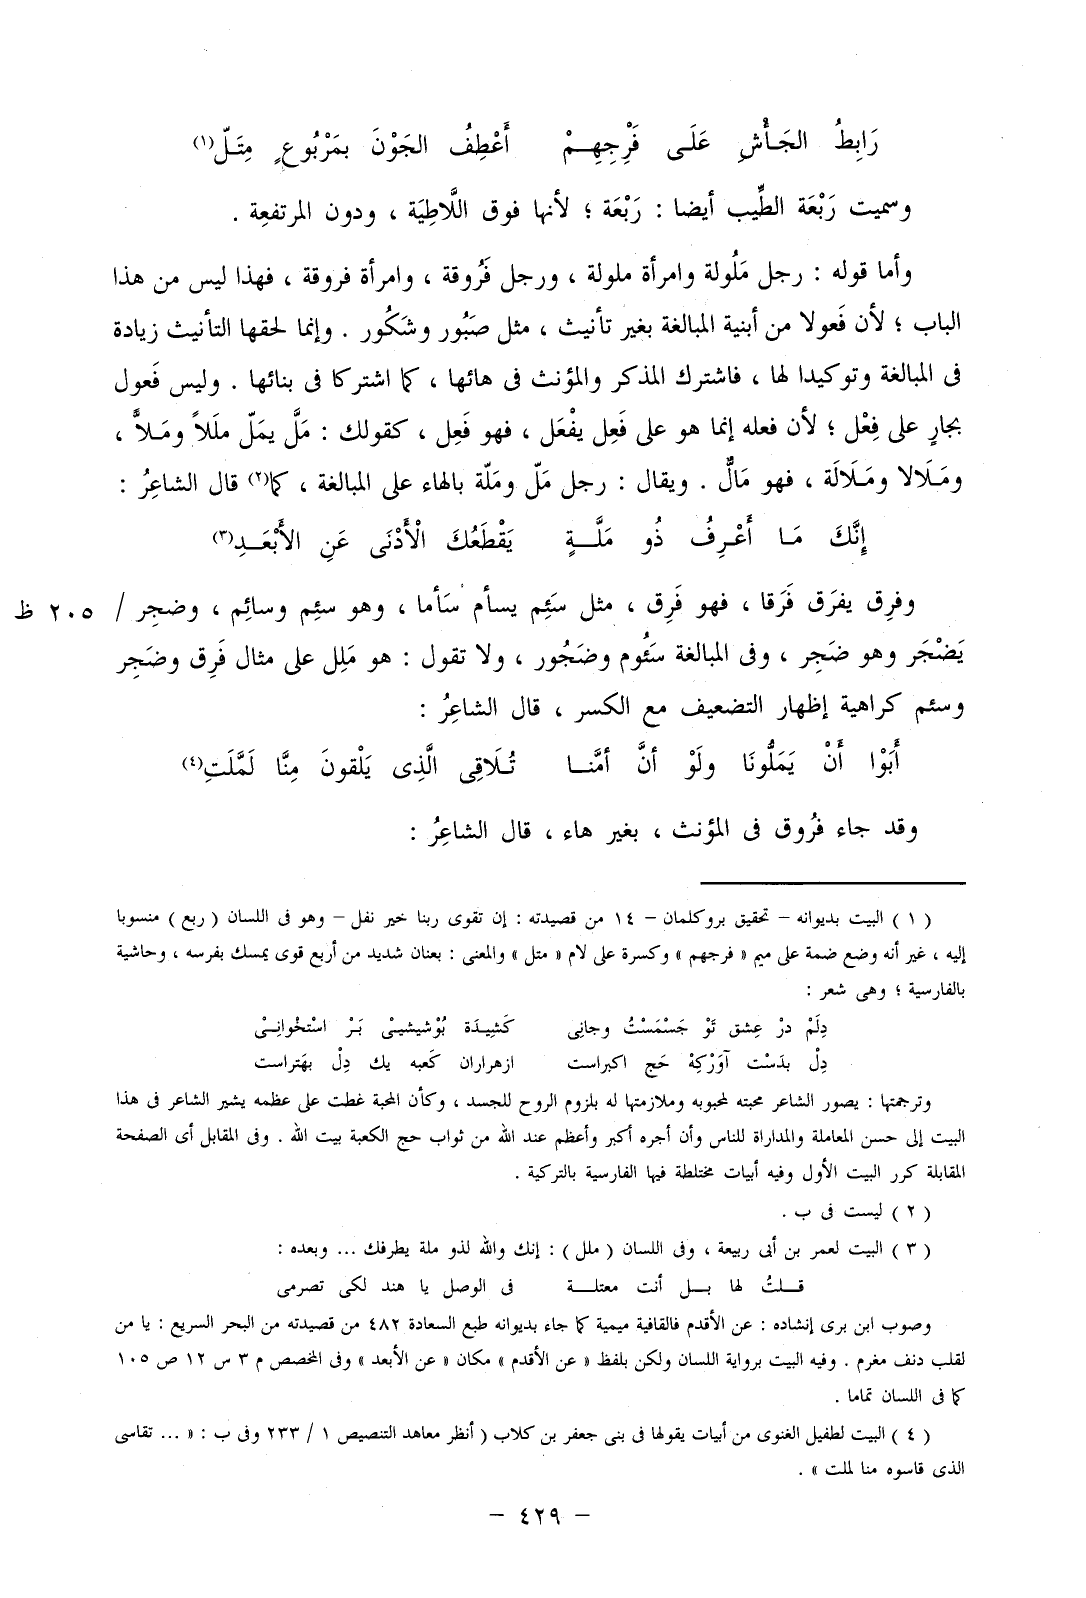 رَابِطُ الجَأْشِ عَلَى فَرْجِهِمْ أَعْطِفُ الجَوْنَ بمَرْبُوعٍ مِتَلّ(١)
وسميت رَبْعَة الطِّيب أيضا : رَبْعَة ؛ لأنها فوق اللَّاطِيَة ، ودون المرتفعِة .
وأما قوله : رجل مَلُولة وامرأة ملولة ، ورجل فَرُوقة ، وامرأة فروقة ، فهذا ليس من هذا
الباب ؛ لأن فَعولا من أبنية المبالغة بغير تأنيث ، مثل صَبُور وشَكُور . وإنما لحقها التأنيث زيادة
فى المبالغة وتوكيدا لها ، فاشترك المذكر والمؤنث فى هائها ، كما اشتركا فى بنائها . وليس فَعول
بجارٍ على فِعْل ؛ لأن فعله إنما هو على فَعِل يفْعَل ، فهو فَعِل ، كقولك : مَلَّ يمَلّ ملَلاً ومَلاًّ ،
ومَلَالا ومَلَالَة ، فهو مَالٌّ . ويقال : رجل مَلّ ومَلّة بالهاء على المبالغة ، كما(٢) قال الشاعِرُ :
إِنَّكَ مَا أَعْرِفُ ذُو مَلَّةٍ يَقْطَعُكَ الْأَدْنَى عَنِ الأَبْعَدِ(٣)
وفرِق يفرَق فَرَقا ، فهو فَرِق ، مثل سَئِم يسأم سَأما ، وهو سئِم وسائِم ، وضجِر / ٢٠٥ ظ
يَضْجَر وهو ضَجِر ، وفى المبالغة سَئُوم وضَجُور ، ولا تقول : هو مَلِل على مثال فَرِق وضَجِر
وسئم كراهية إظهار التضعيف مع الكسر ، قال الشاعِرُ :
أَبَوْا أَنْ يَمَلُّونَا ولَوْ أنَّ أمَّنا تُلَاقِى الَّذِى يَلْقونَ مِنَّا لَمَّلَتِ(٤)
وقد جاء فرُوق فى المؤنث ، بغير هاء ، قال الشاعِرُ :
( ١ ) البيت بديوانه – تحقيق بروكلمان – ١٤ من قصيدته : إن تقوى ربنا خير نفل – وهو فى اللسان ( ربع ) منسوبا
إليه ، غير أنه وضع ضمة على ميم « فرجهم » وكسرة على لام « متل » والمعنى : بعنان شديد من أربع قوى يمسك بفرسه ، وحاشية
بالفارسية ؛ وهى شعر :
دِلَمْ درْ عِشق تَوْ جَسْمَسْتُ وجانِى كَشِيدَة بُوْشيشيىْ بَرْ اسْتخْوانِىْ
دِلْ بدَسْت آوَرْكِهْ حَج اكبراست ازهراران كَعبه يك دِلْ بهَتراست
وترجمتها : يصور الشاعر محبته لمحبوبه وملازمتها له بلزوم الروح للجسد ، وكأن المحبة غطت على عظمه يشير الشاعر فى هذا
البيت إلى حسن المعاملة والمداراة للناس وأن أجره أكبر وأعظم عند الله من ثواب حج الكعبة بيت الله . وفى المقابل أى الصفحة
المقابلة كرر البيت الأول وفيه أبيات مختلطة فيها الفارسية بالتركية .
( ٢ ) ليست فى ب .
( ٣ ) البيت لعمر بن أبى ربيعة ، وفى اللسان ( ملل ) : إنك والله لذو ملة يطرفك ... وبعده :
قلتُ لها بل أنت معتلة فى الوصل يا هند لكى تصرمى
وصوب ابن برى إنشاده : عن الأقدم فالقافية ميمية كما جاء بديوانه طبع السعادة ٤٨٢ من قصيدته من البحر السريع : يا من
لقلب دنف مغرم . وفيه البيت برواية اللسان ولكن بلفظ « عن الأقدم » مكان « عن الأبعد » وفى المخصص م ٣ س ١٢ ص ١٠٥
كما فى اللسان تماما .
( ٤ ) البيت لطفيل الغنوى من أبيات يقولها فى بنى جعفر بن كلاب ( أنظر معاهد التنصيص ١ / ٢٣٣ وفى ب : « ... تقاسى
الذى قاسوه منا لملت » .
– ٤٢٩ –